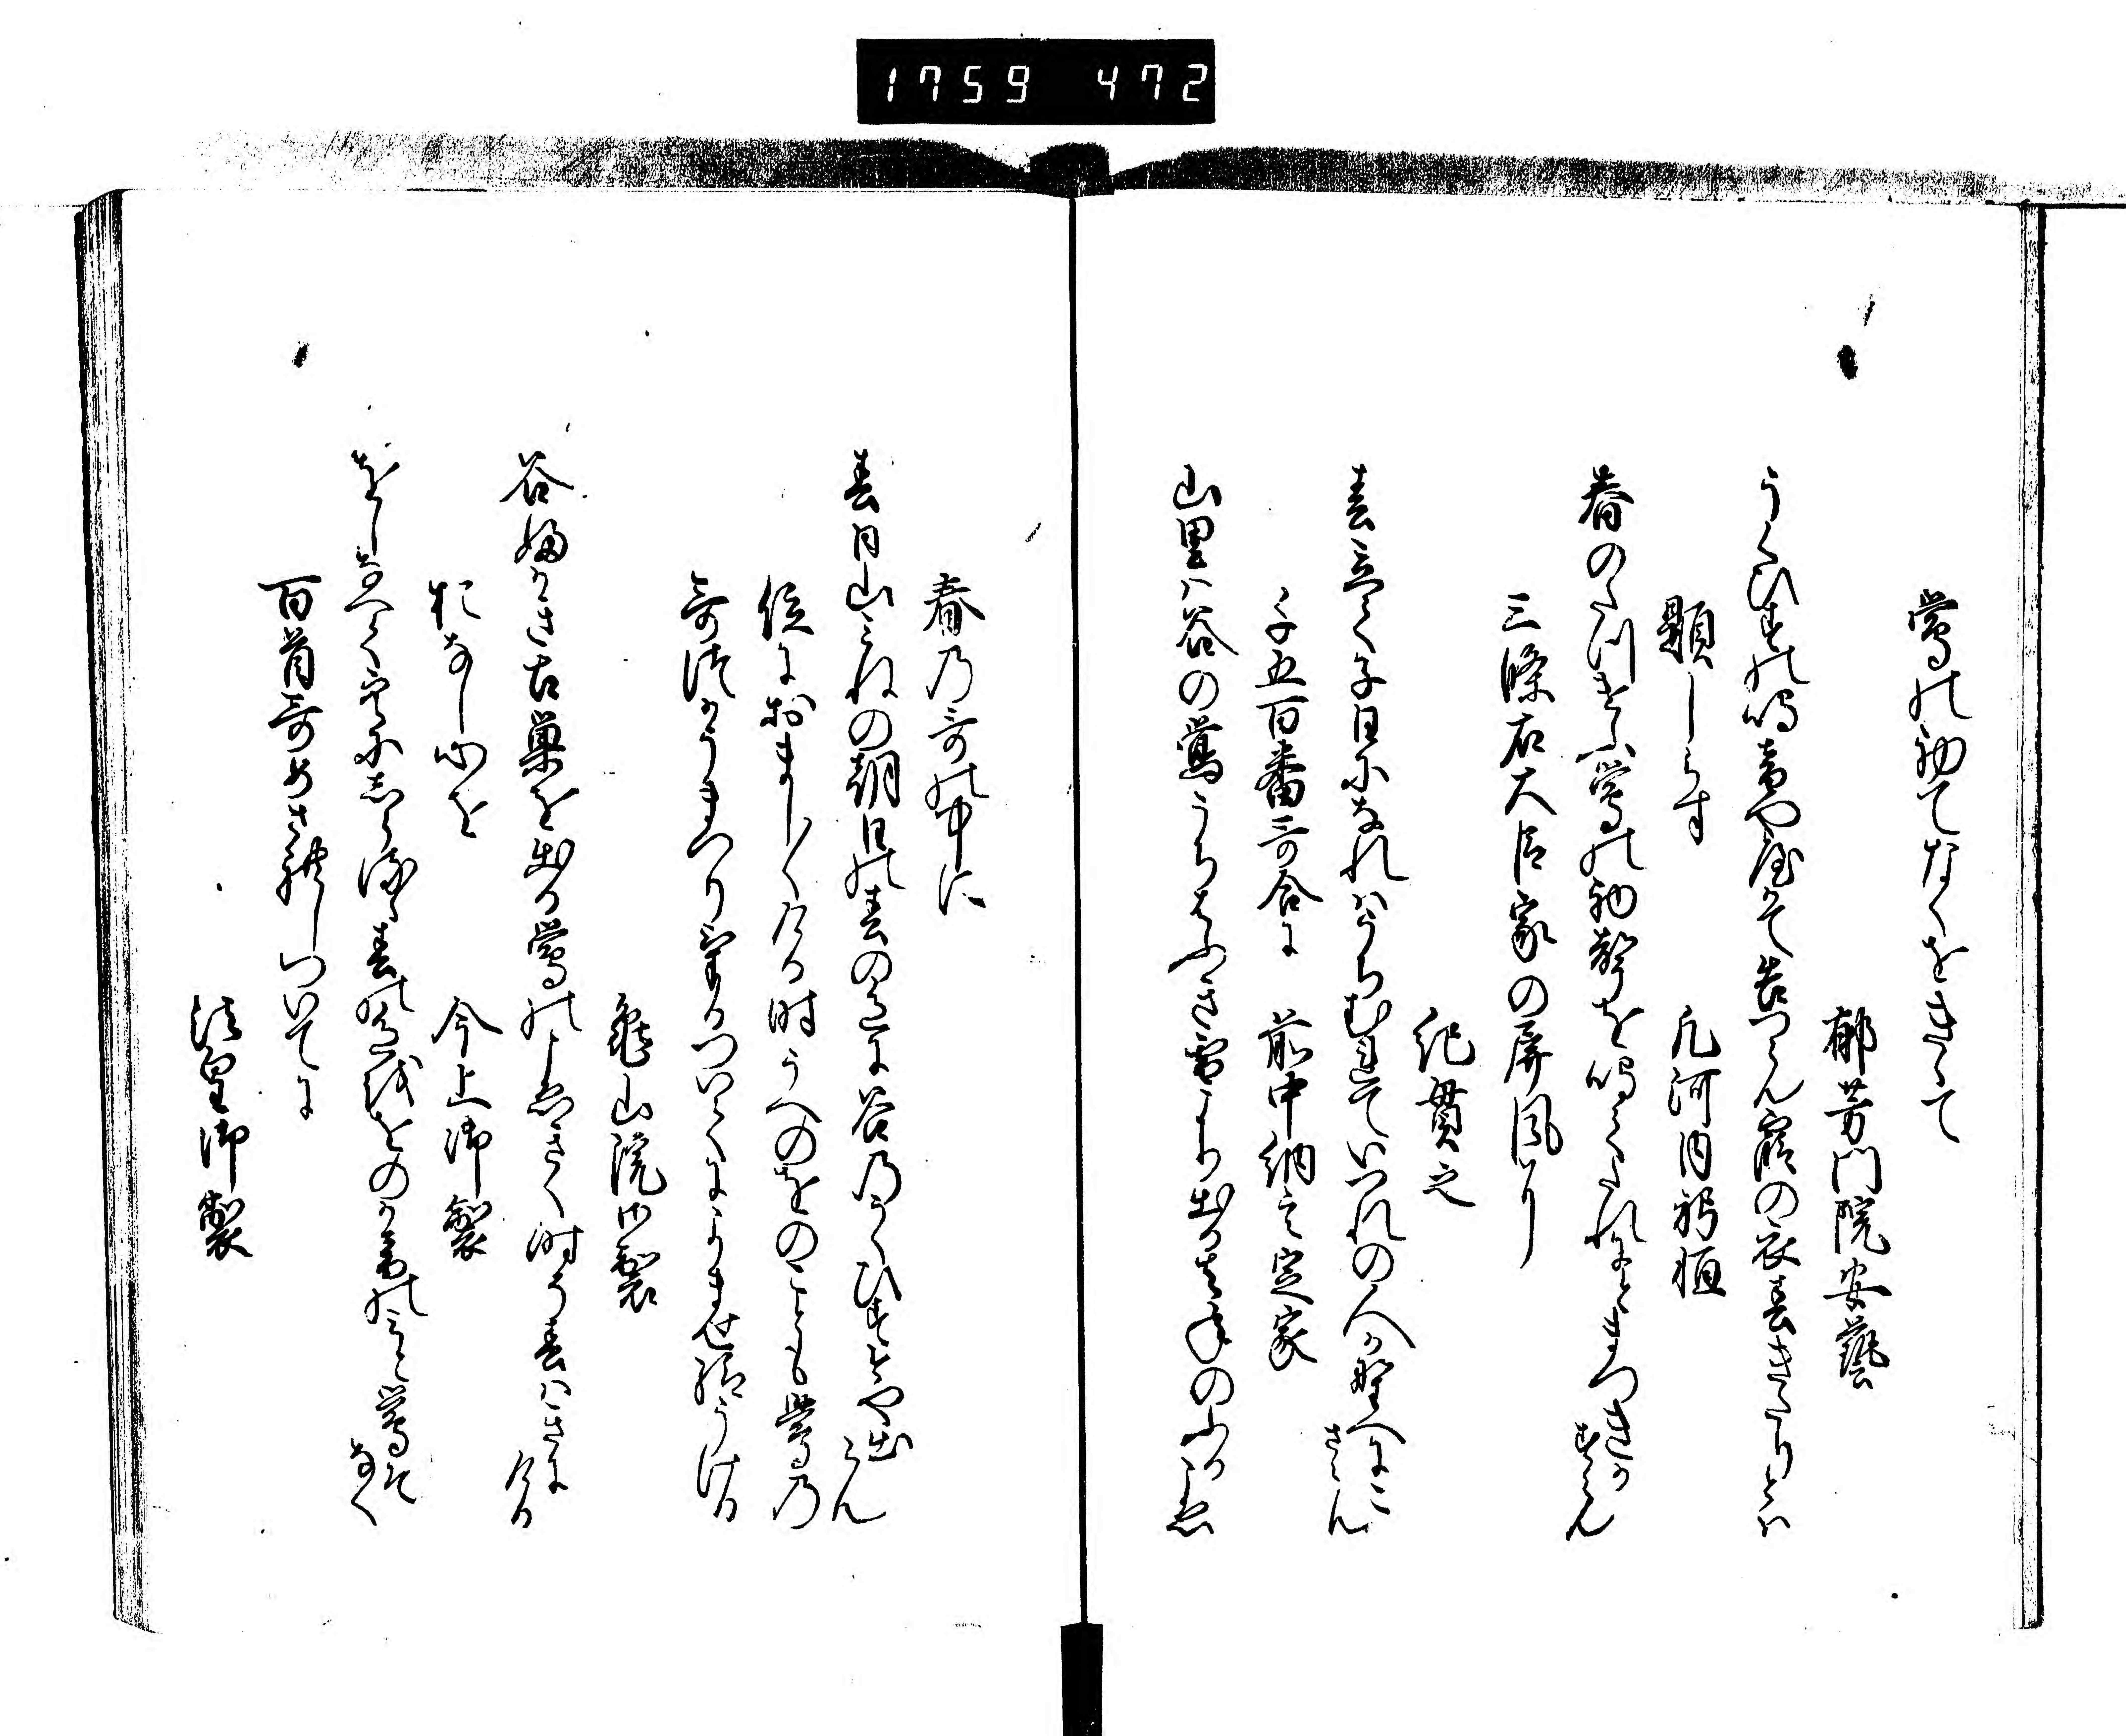 1759 472
鶯の初てなくをきゝて
郁芳門院安藝
うくひすの鳴音や頓て告つらん窓の衣春きたりとは
題しらす
凡河内躬恒
春のくれは鶯の初聲を鳴てくれねとまつきかすらん
三條右大臣家の屏風に
紀貫之
春立て子日になれはうちむれていつれの人か野へにこさらん
千五百番哥合に
前中納言定家
山里は谷の鶯うちはふき雪より出る
春乃哥の中に
春日山みねの朝日の春の色に谷乃うくひす今や出らん
位におましましける時うへのをのことも鶯乃
哥つかうまつり
つゐてによませ給うける
龜山院御製
谷ふかき古巣を出る鶯の聲きく時そ春はきにける
おなし心を
今上御製
をしなへて
春の色をおのか音のみと鶯そなく
百首哥めされしついてに
法皇御製